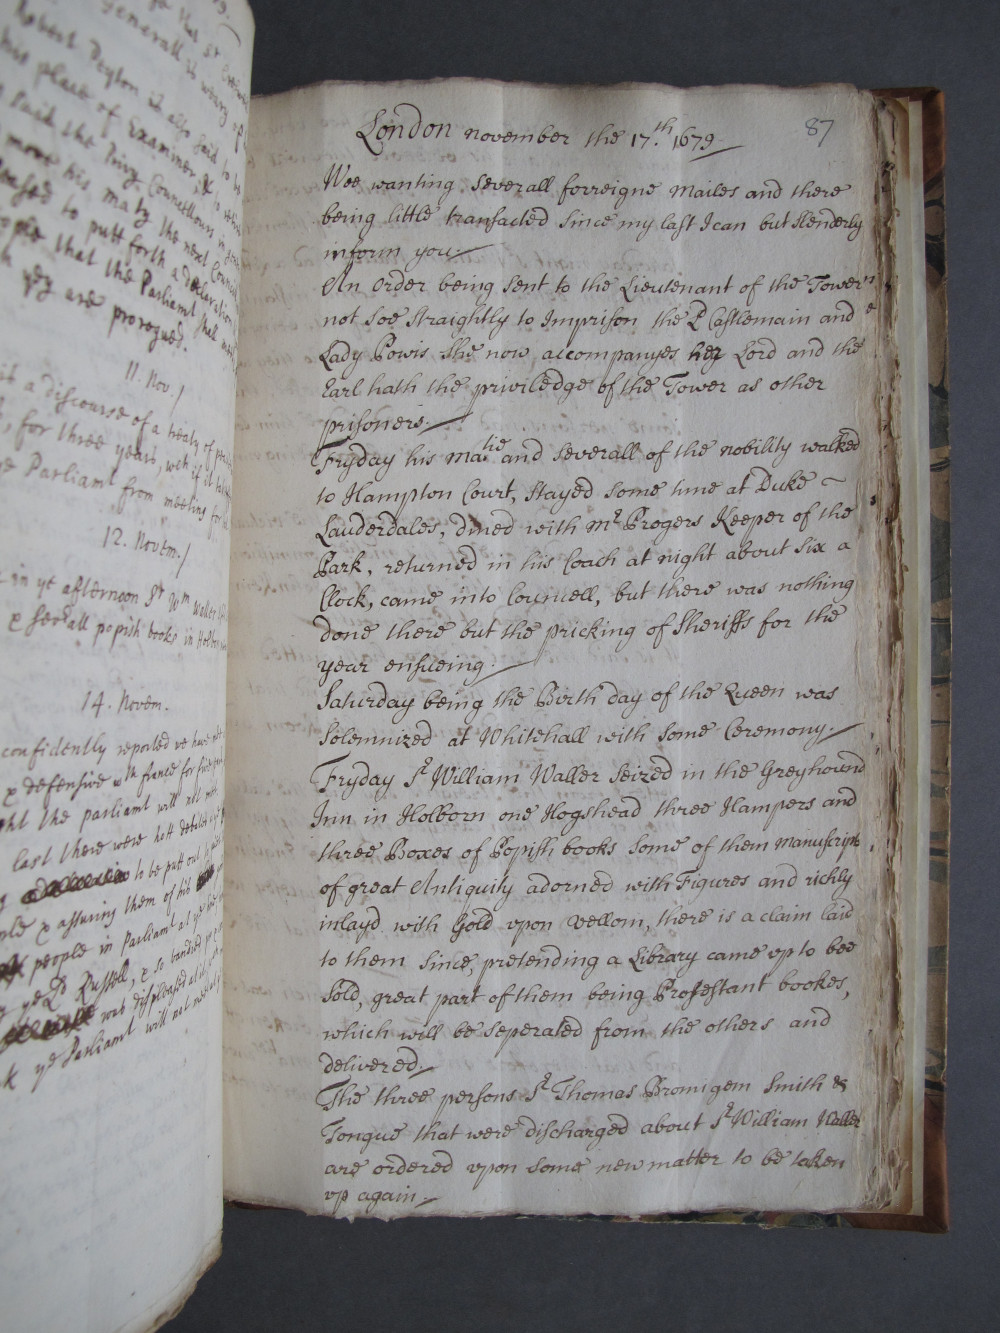 Robert Peyton is also said to be
his place of Examiner, &
said the Privy Councellours in
more his maty the next Councel
pleased to putt forth a declaration
people that the Parliamt shall
ye are prorogued.
11. Nov. /
a discourse of a treaty of
, for three years, wch if it
ye Parliamt from meeting for
12. Novem. /
in ye afternoon Sr Wm Waller
& severall popish books in Holborn
14. Novem.
confidently reported we have
& defensive wth france for five
the parliamt will not meet
last there were hott debates
to be putt out
& assuring them of his
people in Parliamt at ye
ye Ld Russell, & so
was displeased at it
ye Parliamt will not
87
London november the 17.th 1679
Wee wanting severall forreigne mailes and there
being little transacted since my last I can but slenderly
inform you.
An Order being sent to the Lieutenant of the Tower
not soe straightly to Imprison the E Castlemain and
Lady Powis she now accompanyes her Lord and the
Earl hath the priviledge of the Tower as other
prisoners.
Fryday his Matie and severall of the nobility walked
to Hampton Court, stayed some time at Duke ~
Lauderdales, dined with Mr Progers Keeper of the
Park, returned in his Coach at night about six a
Clock, came into Councell, but there was nothing
done there but the pricking of Sheriffs for the
year ensueing.
Saturday being the Birth day of the Queen was
solemnized at Whitehall with some Ceremony.
Fryday Sr William Waller seized in the Greyhound
Inn in Holborn one Hogshead three Hampers and
three Boxes of Popish books some of them manuscripts
of great Antiquity adorned with Figures and richly
inlayd with Gold upon vellom, there is a claim laid
to them since, pretending a Library came up to bee
sold, great part of them being Protestant bookes,
which will be seperated from the others and
delivered.
The three persons Sr Thomas Bromigem Smith &
Tongue that were discharged about Sr William Waller
are ordered upon some new matter to be taken
up again.